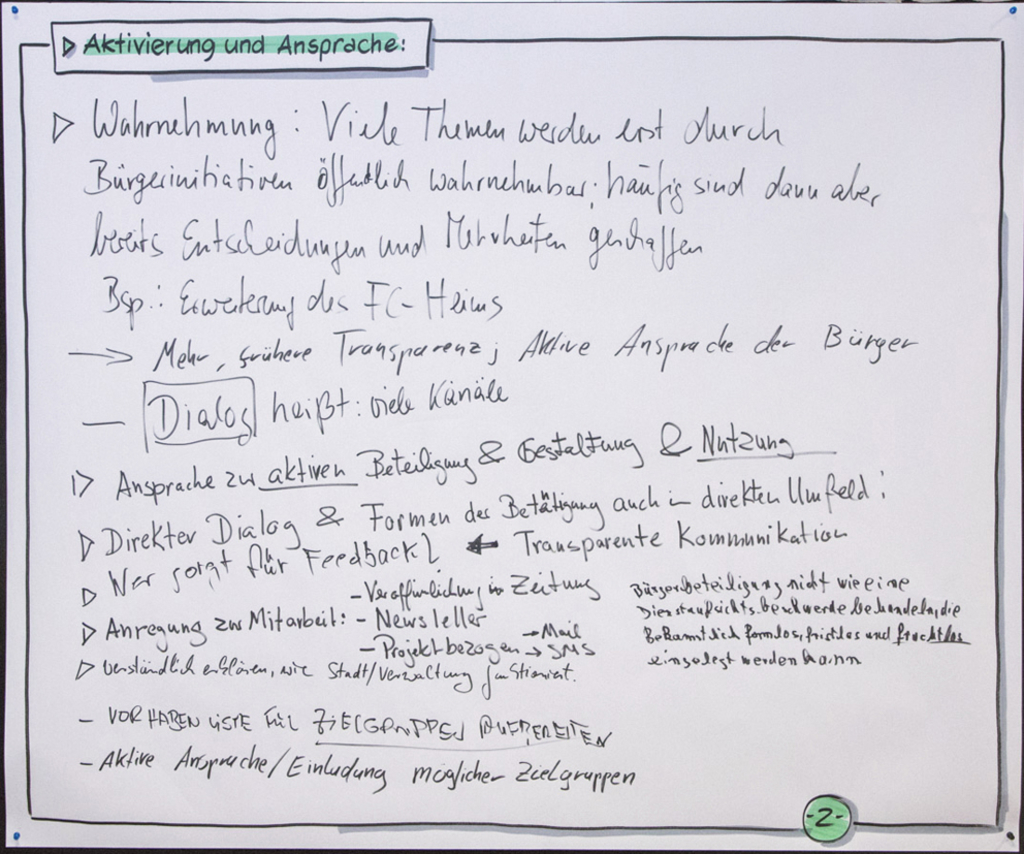 ▷ Aktivierung und Ansprache:
▷ Wahrnehmung: Viele Themen werden erst durch
Bürgerinitiativen öffentlich wahrnehmbar; häufig sind dann aber
bereits Entscheidungen und Mehrheiten geschaffen
Bsp.: Erweiterung des FC-Heims
→ Mehr, frühere Transparenz; Aktive Ansprache der Bürger
— Dialog heißt: viele Kanäle
▷ Ansprache zur aktiven Beteiligung & Gestaltung & Nutzung
▷ Direkter Dialog & Formen der Betätigung auch in direkten Umfeld!
▷ Wer sorgt für Feedback? ← Transparente Kommunikation
- Veröffentlichung in Zeitung
▷ Anregung zur Mitarbeit: - Newsletter
- Projektbezogen → Mail
→ SMS
▷ verständlich erklären, wie Stadt/Verwaltung funktioniert.
Bürgerbeteiligung nicht wie eine
Dienstaufsichtsbeschwerde behandeln, die
bekanntlich formlos, fristlos und fruchtlos
eingelegt werden kann
- VORHABENLISTE FÜR ZIELGRUPPEN AUFBEREITEN
- Aktive Ansprache/Einladung möglicher Zielgruppen
-2-